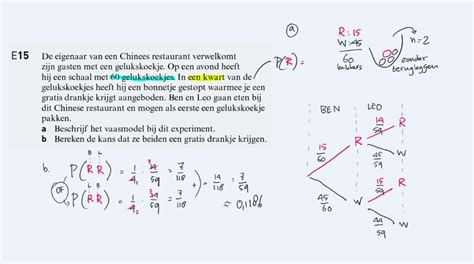 E15 De eigenaar van een Chinees restaurant verwelkomt
zijn gasten met een gelukskoekje. Op een avond heeft
hij een schaal met 60 gelukskoekjes. In een kwart van de
gelukskoekjes heeft hij een bonnetje gestopt waarmee je een
gratis drankje krijgt aangeboden. Ben en Leo gaan eten bij
dit Chinese restaurant en mogen als eerste een gelukskoekje
pakken.
a Beschrijf het vaasmodel bij dit experiment.
b Bereken de kans dat ze beiden een gratis drankje krijgen.
a
P(R) =
R: 15
W: 45
60
n=2
zonder
terugleggen
BEN LEO
15/60 R
14/59 R
45/59 W
45/60 W
15/59 R
44/59 W
b.
B L
P(R R) = 1/4 · 14/59 = 7/118
OF
L B
P(R R) = 1/4 · 14/59 = 7/118
+ = 14/118 = 7/59
≈ 0,1186